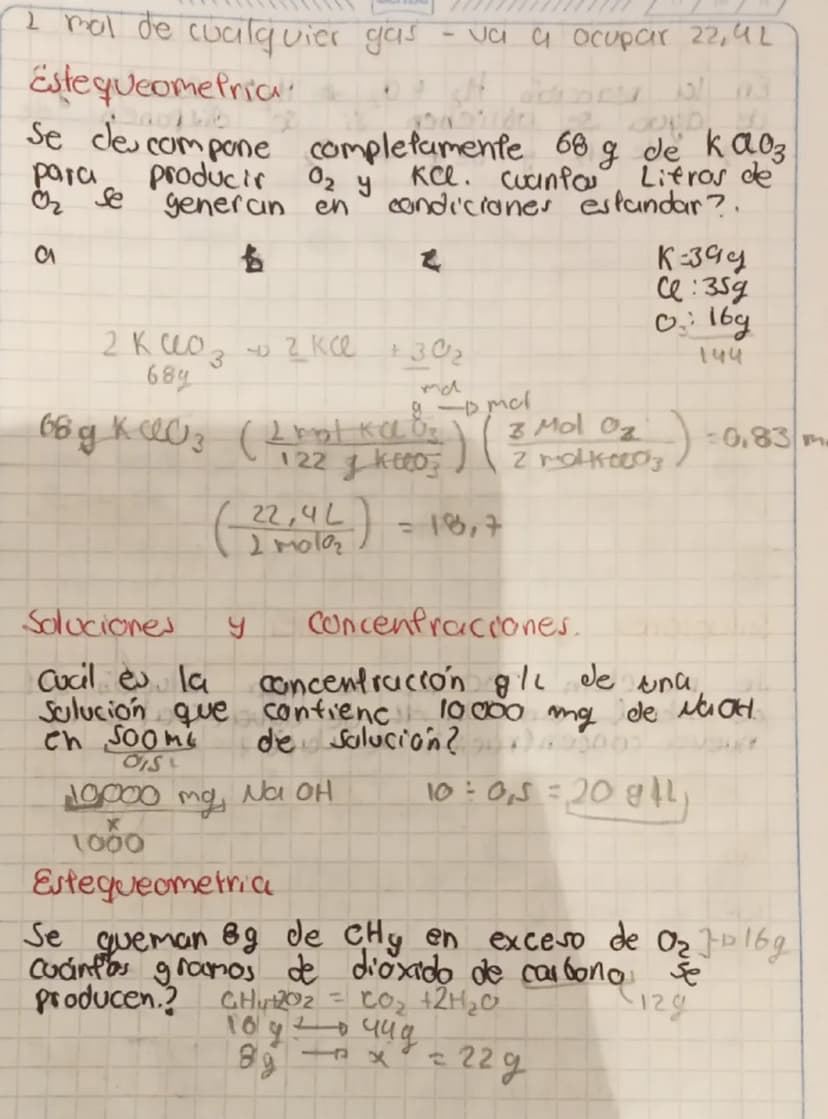 1 mol de cualquier gas - va a ocupar 22,4L
Estequeometria.
Se descompone completamente 68 g de KClO3
para producir O2 y KCl. cuantos Litros de
O2 se generan en condiciones estandar?.
a b c
K=39g
Cl: 35g
O: 16g
144
2 KClO3 → 2 KCl + 3O2
68g
mol
g → mol
68g KClO3 (1 mol KClO3 / 122 g KClO3) (3 Mol O2 / 2 mol KClO3) = 0,83 m
(22,4L / 1 mol O2) = 18,7
Soluciones y concentracciones.
Cual es la concentracción g/L de una
Solución que contiene 10000 mg de NaOH
en 500mL de solución?
0,5L
10000 mg NaOH 10 ÷ 0,5 = 20 g/L
x
1000
Estequeometria
Se queman 8g de CH4 en exceso de O2 }→16g
cuántos gramos de dióxido de carbono se
producen.? CH4+2O2 = CO2 +2H2O 12g
16g → 44g
8g → x = 22g